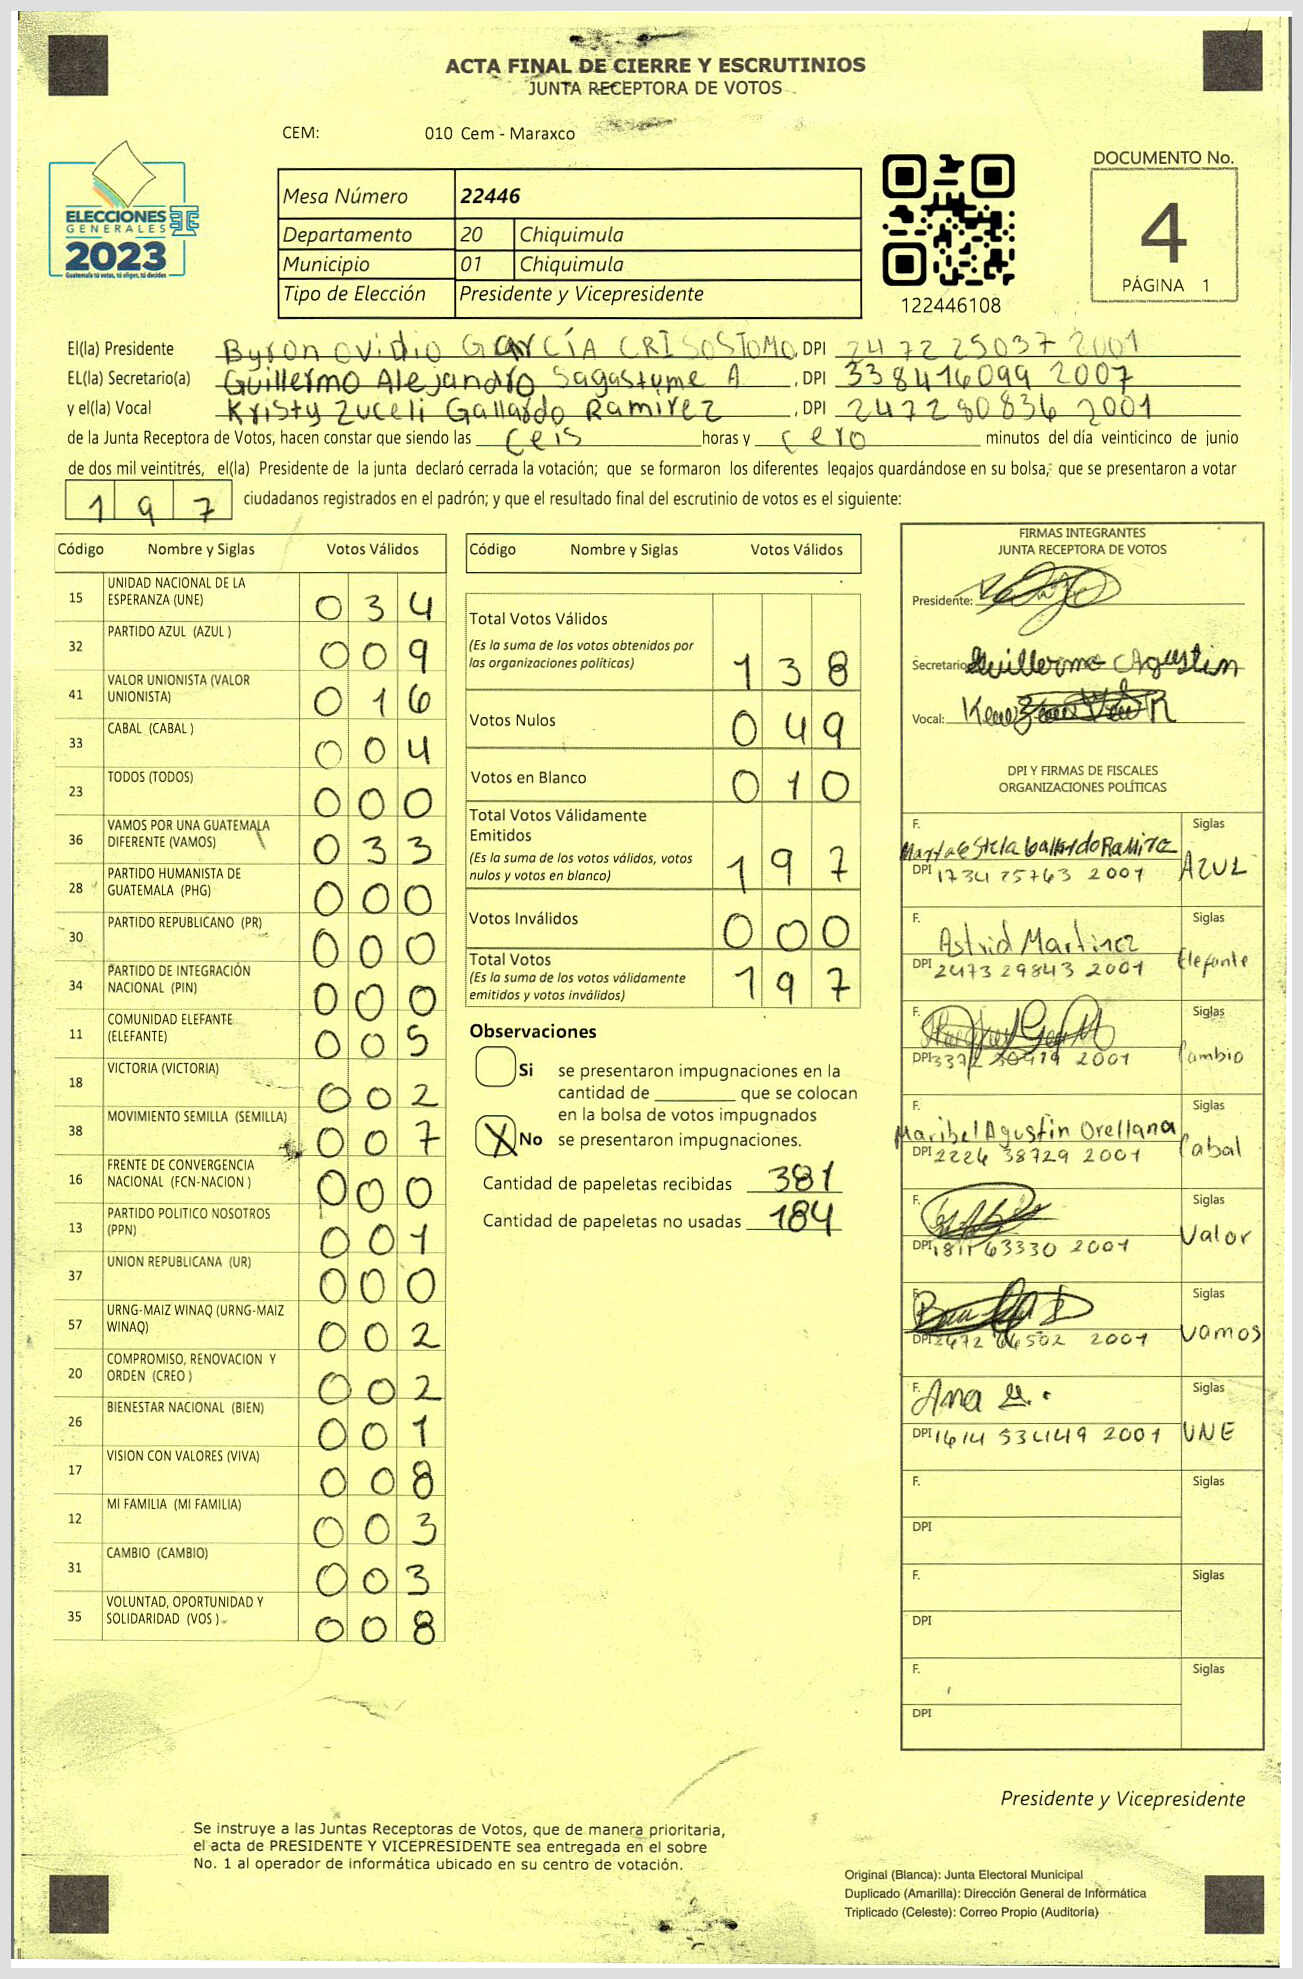 ACTA FINAL DE CIERRE Y ESCRUTINIOS
JUNTA RECEPTORA DE VOTOS
CEM: 010 Cem - Maraxco
ELECCIONES
GENERALES
2023
Guatemala tú votas, tú eliges, tú decides
Mesa Número 22446
Departamento 20 Chiquimula
Municipio 01 Chiquimula
Tipo de Elección Presidente y Vicepresidente
122446108
DOCUMENTO No.
4
PÁGINA 1
El(la) Presidente Byron ovidio GARCÍA CRISOSTOMO, DPI 247225037 2001
EL(la) Secretario(a) Guillermo Alejandro Sagastume A , DPI 338416099 2007
y el(la) Vocal Kristy Zuceli Gallardo Ramirez , DPI 247280836 2001
de la Junta Receptora de Votos, hacen constar que siendo las Ceis horas y cero minutos del día veinticinco de junio
de dos mil veintitrés, el(la) Presidente de la junta declaró cerrada la votación; que se formaron los diferentes legajos guardándose en su bolsa, que se presentaron a votar
197 ciudadanos registrados en el padrón; y que el resultado final del escrutinio de votos es el siguiente:
Código Nombre y Siglas Votos Válidos
15 UNIDAD NACIONAL DE LA ESPERANZA (UNE) 034
32 PARTIDO AZUL (AZUL ) 009
41 VALOR UNIONISTA (VALOR UNIONISTA) 016
33 CABAL (CABAL ) 004
23 TODOS (TODOS) 000
36 VAMOS POR UNA GUATEMALA DIFERENTE (VAMOS) 033
28 PARTIDO HUMANISTA DE GUATEMALA (PHG) 000
30 PARTIDO REPUBLICANO (PR) 000
34 PARTIDO DE INTEGRACIÓN NACIONAL (PIN) 000
11 COMUNIDAD ELEFANTE (ELEFANTE) 005
18 VICTORIA (VICTORIA) 002
38 MOVIMIENTO SEMILLA (SEMILLA) 007
16 FRENTE DE CONVERGENCIA NACIONAL (FCN-NACION ) 000
13 PARTIDO POLITICO NOSOTROS (PPN) 001
37 UNION REPUBLICANA (UR) 000
57 URNG-MAIZ WINAQ (URNG-MAIZ WINAQ) 002
20 COMPROMISO, RENOVACION Y ORDEN (CREO ) 002
26 BIENESTAR NACIONAL (BIEN) 001
17 VISION CON VALORES (VIVA) 008
12 MI FAMILIA (MI FAMILIA) 003
31 CAMBIO (CAMBIO) 003
35 VOLUNTAD, OPORTUNIDAD Y SOLIDARIDAD (VOS ) 008
Código Nombre y Siglas Votos Válidos
Total Votos Válidos
(Es la suma de los votos obtenidos por las organizaciones políticas) 138
Votos Nulos 049
Votos en Blanco 010
Total Votos Válidamente Emitidos
(Es la suma de los votos válidos, votos nulos y votos en blanco) 197
Votos Inválidos 000
Total Votos
(Es la suma de los votos válidamente emitidos y votos inválidos) 197
Observaciones
Si se presentaron impugnaciones en la
cantidad de ________ que se colocan
en la bolsa de votos impugnados
X No se presentaron impugnaciones.
Cantidad de papeletas recibidas 381
Cantidad de papeletas no usadas 184
FIRMAS INTEGRANTES
JUNTA RECEPTORA DE VOTOS
Presidente:
Secretario Guillermo Agustin
Vocal:
DPI Y FIRMAS DE FISCALES
ORGANIZACIONES POLÍTICAS
F. Marta Estela Gallardo Ramirez Siglas
DPI 1734 25763 2001 AZUL
F. Astrid Martinez Siglas
DPI 2473 29843 2001 Elefante
F. Siglas
DPI 2001 Cambio
F. Maribel Agustin Orellana Siglas
DPI 2226 38729 2001 Cabal
F. Siglas
DPI 1811 63330 2001 Valor
F. Siglas
DPI 2001 Vamos
F. Ana Siglas
DPI 1614 534149 2001 UNE
F. Siglas
DPI
F. Siglas
DPI
F. Siglas
DPI
Presidente y Vicepresidente
Se instruye a las Juntas Receptoras de Votos, que de manera prioritaria,
el acta de PRESIDENTE Y VICEPRESIDENTE sea entregada en el sobre
No. 1 al operador de informática ubicado en su centro de votación.
Original (Blanca): Junta Electoral Municipal
Duplicado (Amarilla): Dirección General de Informática
Triplicado (Celeste): Correo Propio (Auditoría)